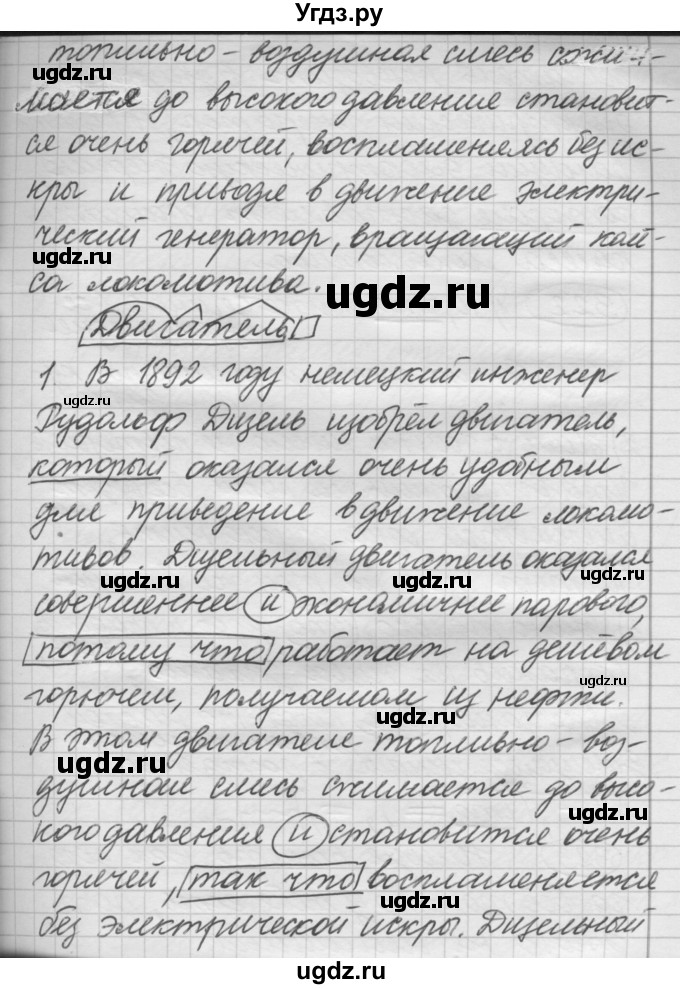 Угдз.ру
топливно-воздушная смесь сжи-
мается до высокого давления становит-
ся очень горячей, воспламеняясь без ис-
кры и приводя в движение электри-
ческий генератор, вращающий коле-
са локомотива.
Двигатель
1 В 1892 году немецкий инженер
Рудольф Дизель изобрёл двигатель,
который оказался очень удобным
для приведение в движение локомо-
тивов. Дизельный двигатель оказался
совершеннее и экономичнее парового,
потому что работает на дешёвом
горючем, получаемом из нефти.
В этом двигателе топливно-воз-
душная смесь сжимается до высо-
кого давления и становится очень
горячей, так что воспламеняется
без электрической искры. Дизельный
ugdz.ru